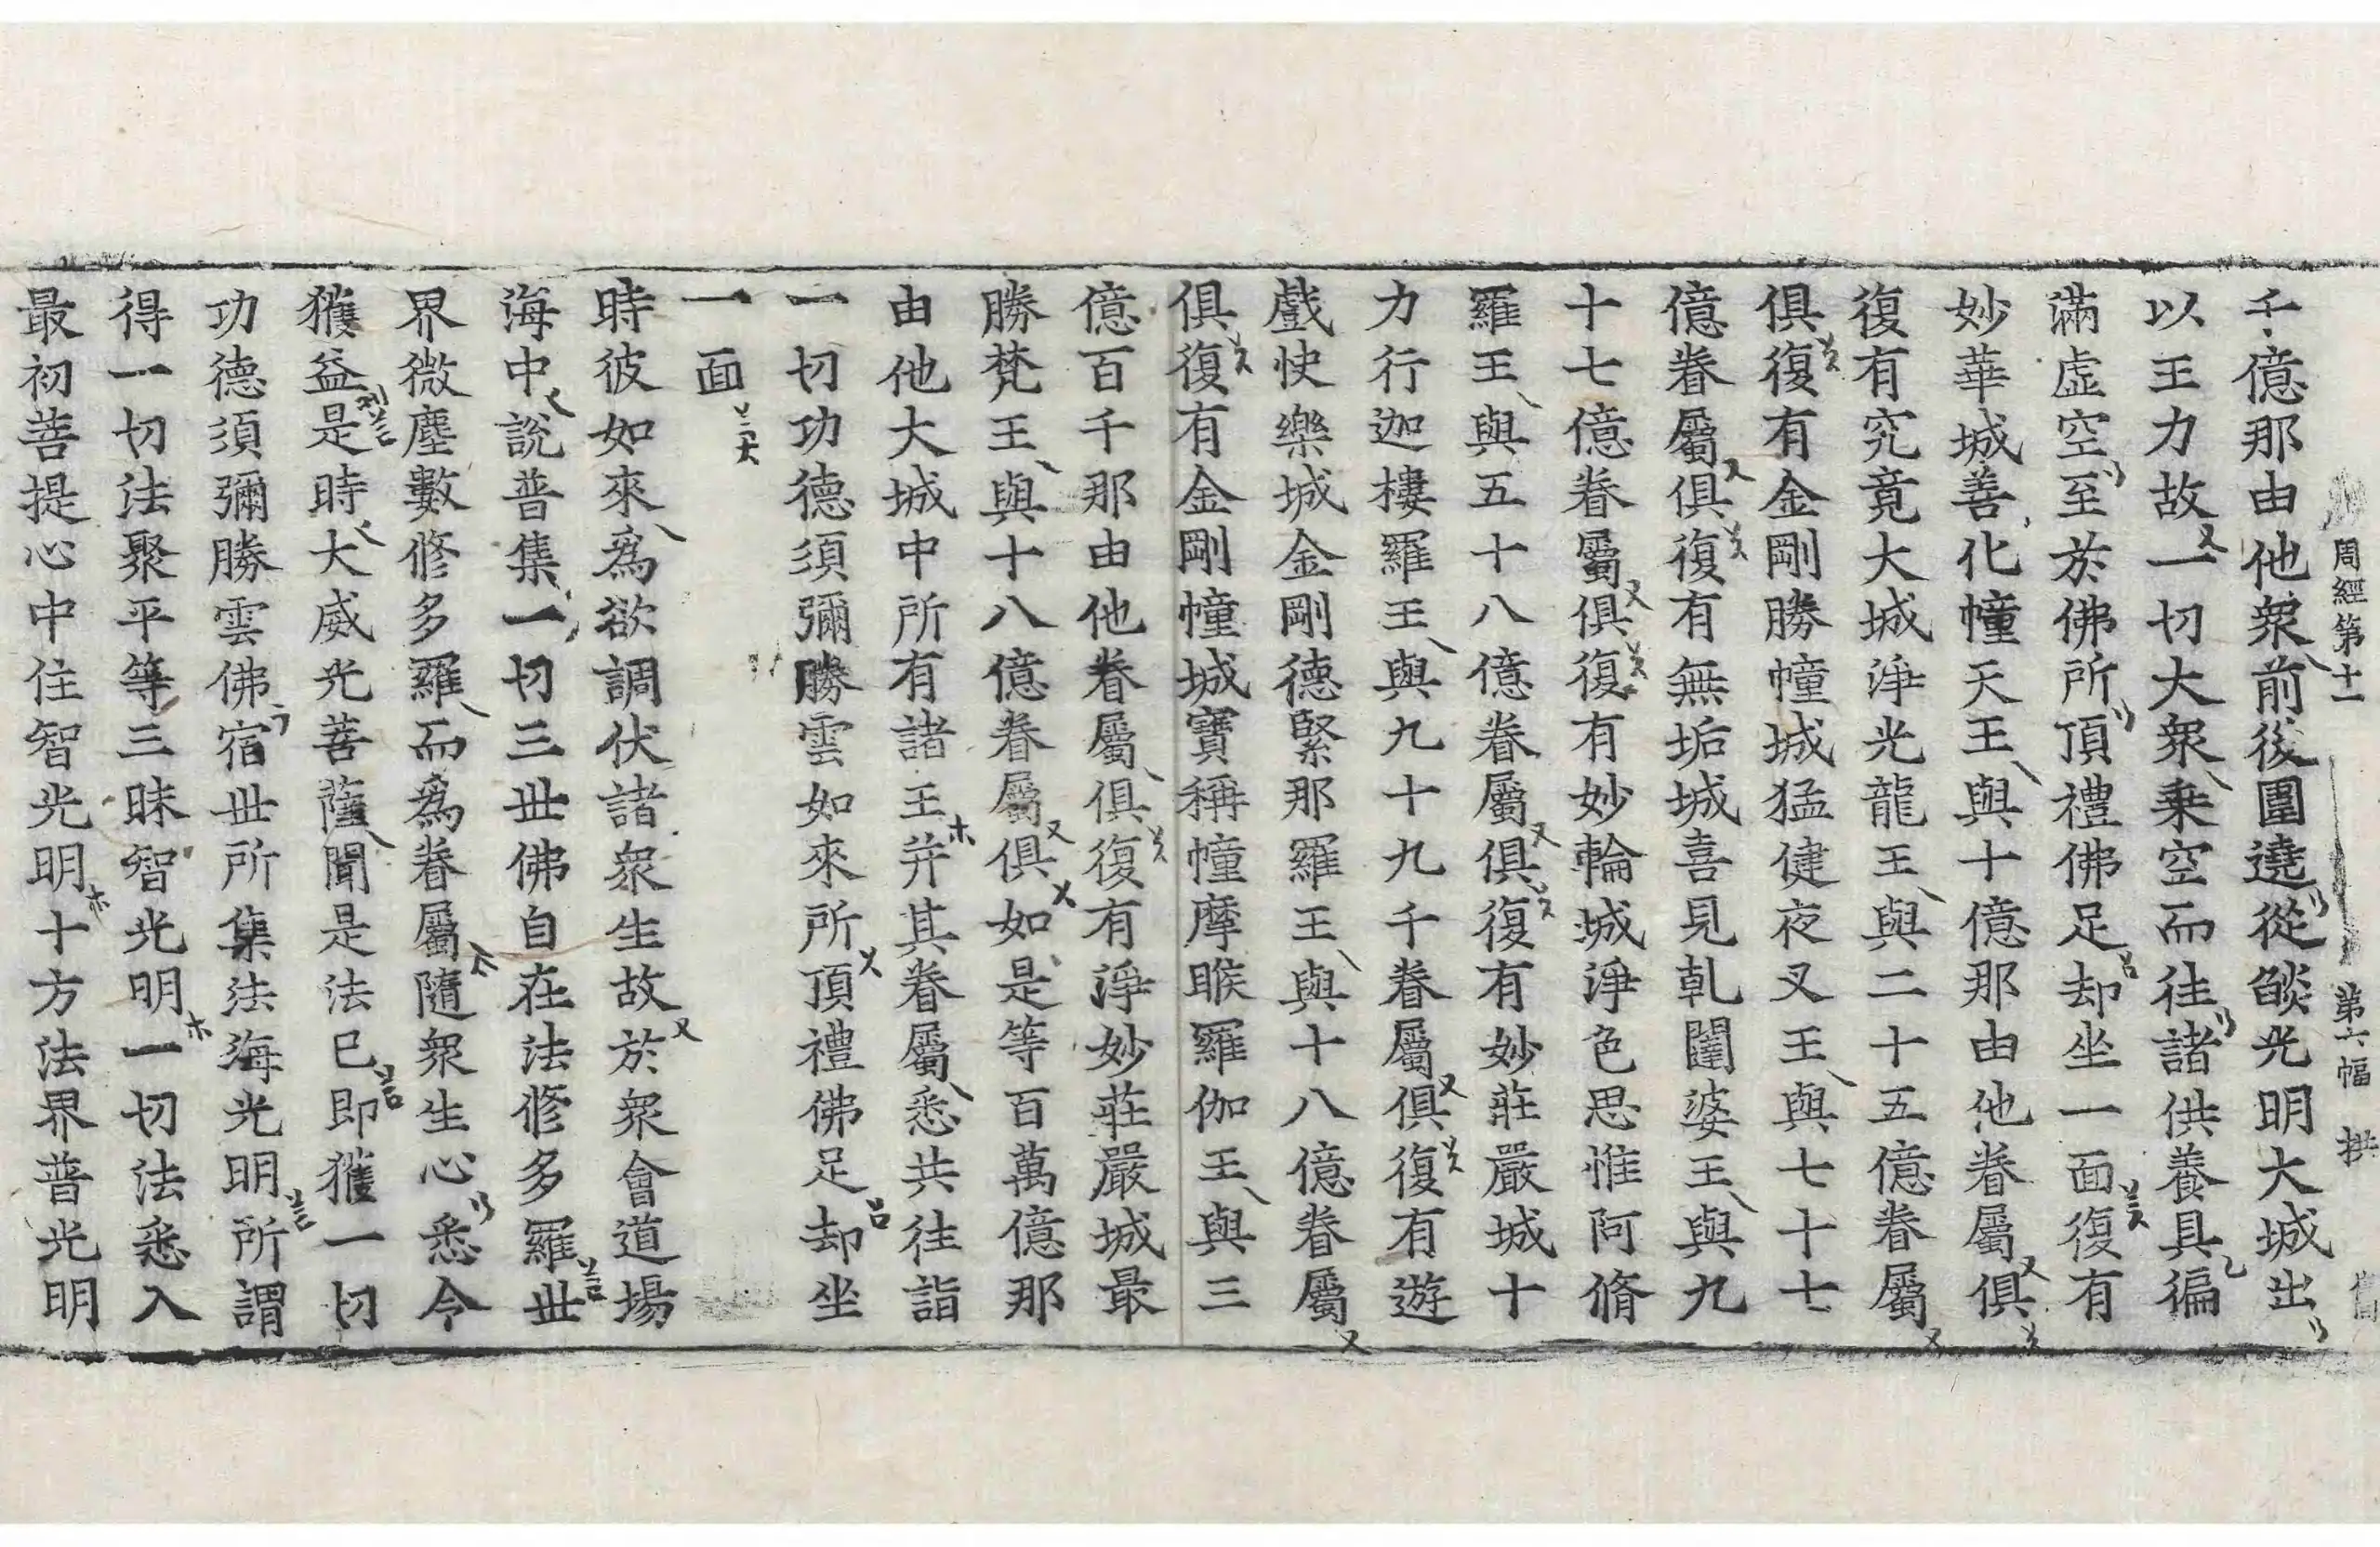 周經第十一 第六幅
千億那由他衆前後圍遶從燄光明大城出
以王力故一切大衆乗空而往諸供養具徧
滿虛空至於佛所頂禮佛足却坐一面復有
妙華城善化幢天王與十億那由他眷屬俱
復有究竟大城淨光龍王與二十五億眷屬
俱復有金剛勝幢城猛健夜叉王與七十七
億眷屬俱復有無垢城喜見乹闥婆王與九
十七億眷屬俱復有妙輪城淨色思惟阿脩
羅王與五十八億眷屬俱復有妙莊嚴城十
力行迦樓羅王與九十九千眷屬俱復有遊
戲快樂城金剛德緊那羅王與十八億眷屬
俱復有金剛幢城寶稱幢摩睺羅伽王與三
億百千那由他眷屬俱復有淨妙莊嚴城最
勝梵王與十八億眷屬俱如是等百萬億那
由他大城中所有諸王并其眷屬悉共往詣
一切功德須彌勝雲如來所頂禮佛足却坐
一面
時彼如來爲欲調伏諸衆生故於衆會道場
海中說普集一切三世佛自在法修多羅世
界微塵數修多羅而爲眷屬隨衆生心悉令
獲益是時大威光菩薩聞是法已即獲一切
功德須彌勝雲佛宿世所集法海光明所謂
得一切法聚平等三昧智光明一切法悉入
最初菩提心中住智光明十方法界普光明